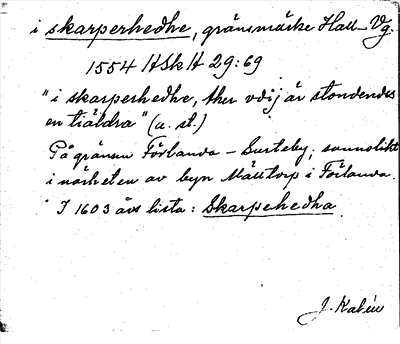 i skarperhedhe, gränsmärke Hall–Vg.
1554 HSkH 29:69
"i skarperhedhe, ther vdij är stondendes
en tiäldra" (a. st.)
På gränsen Förlanda – Surteby; sannolikt
i närheten av byn Mälltorp i Förlanda.
I 1603 års lista: Skarpehedha
J. Kalén